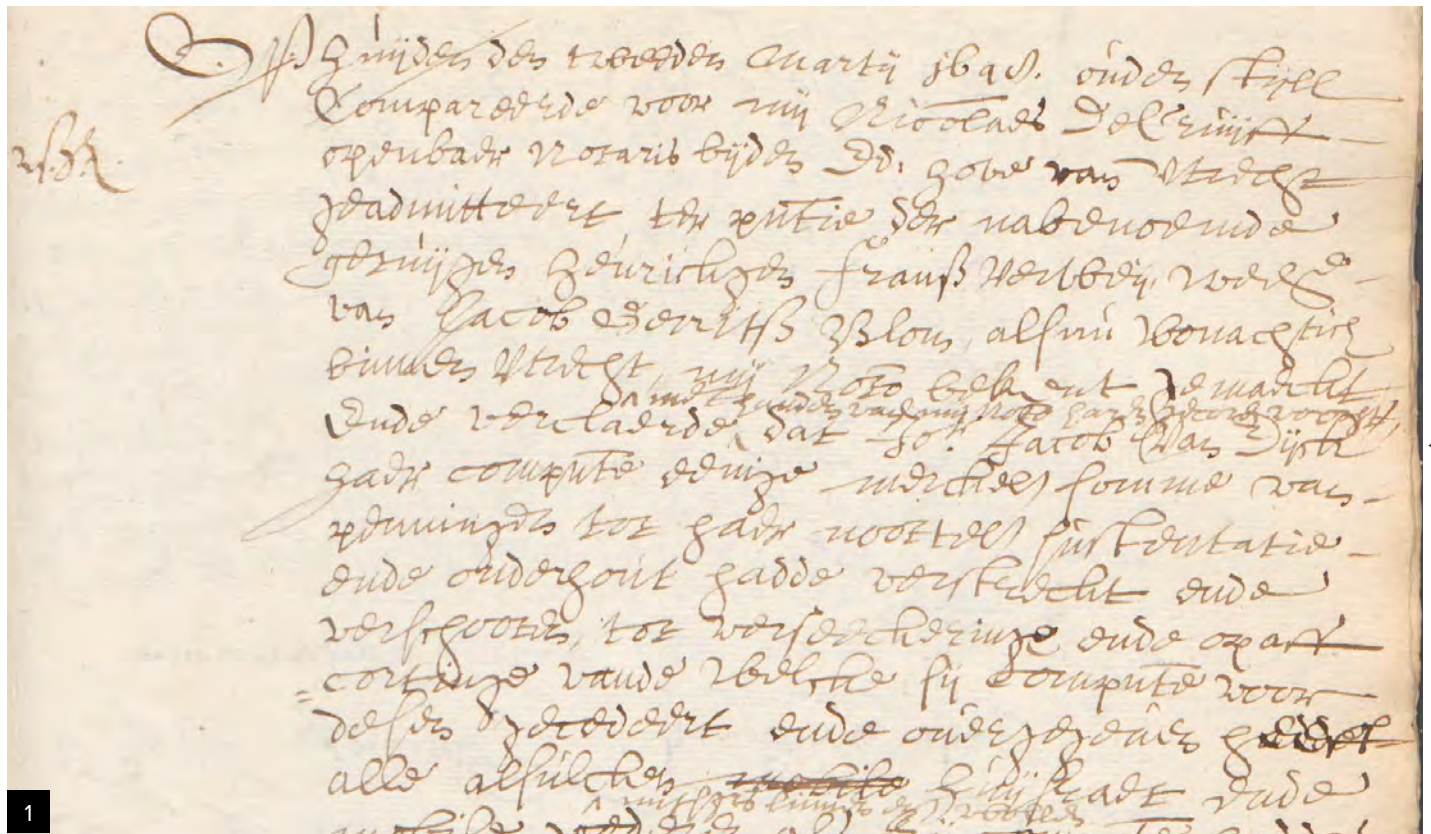 Op huijden den tweeden Martij 164. ouden stijll
Compareerde voor mij Nicolaes De Cruijff
openbaer Notaris bijden Ed. Hove van Utrecht
geadmitteert, ter pntie der nabenoemde
getuijgen Henrickgen Franß Verweij, wed.
van Jacob Gerritß Blom, alsnu wonachtich
binnen Utrecht, mij Noto bekent gemaeckt,
met handen van mij Noto haer
Ende verclaerde, dat Jor. Jacob Van Dijck
haer compnte eenige merckel somme van
penningen tot haer nootel sustentatie
ende onderhout hadde verstreckt ende
verschooten, tot verseeckeringe ende op aff
cortinge vande welcke sij compnte voor
desen gecedeert ende overgegeven heeft
alle alsulcken huijsraet ende
1